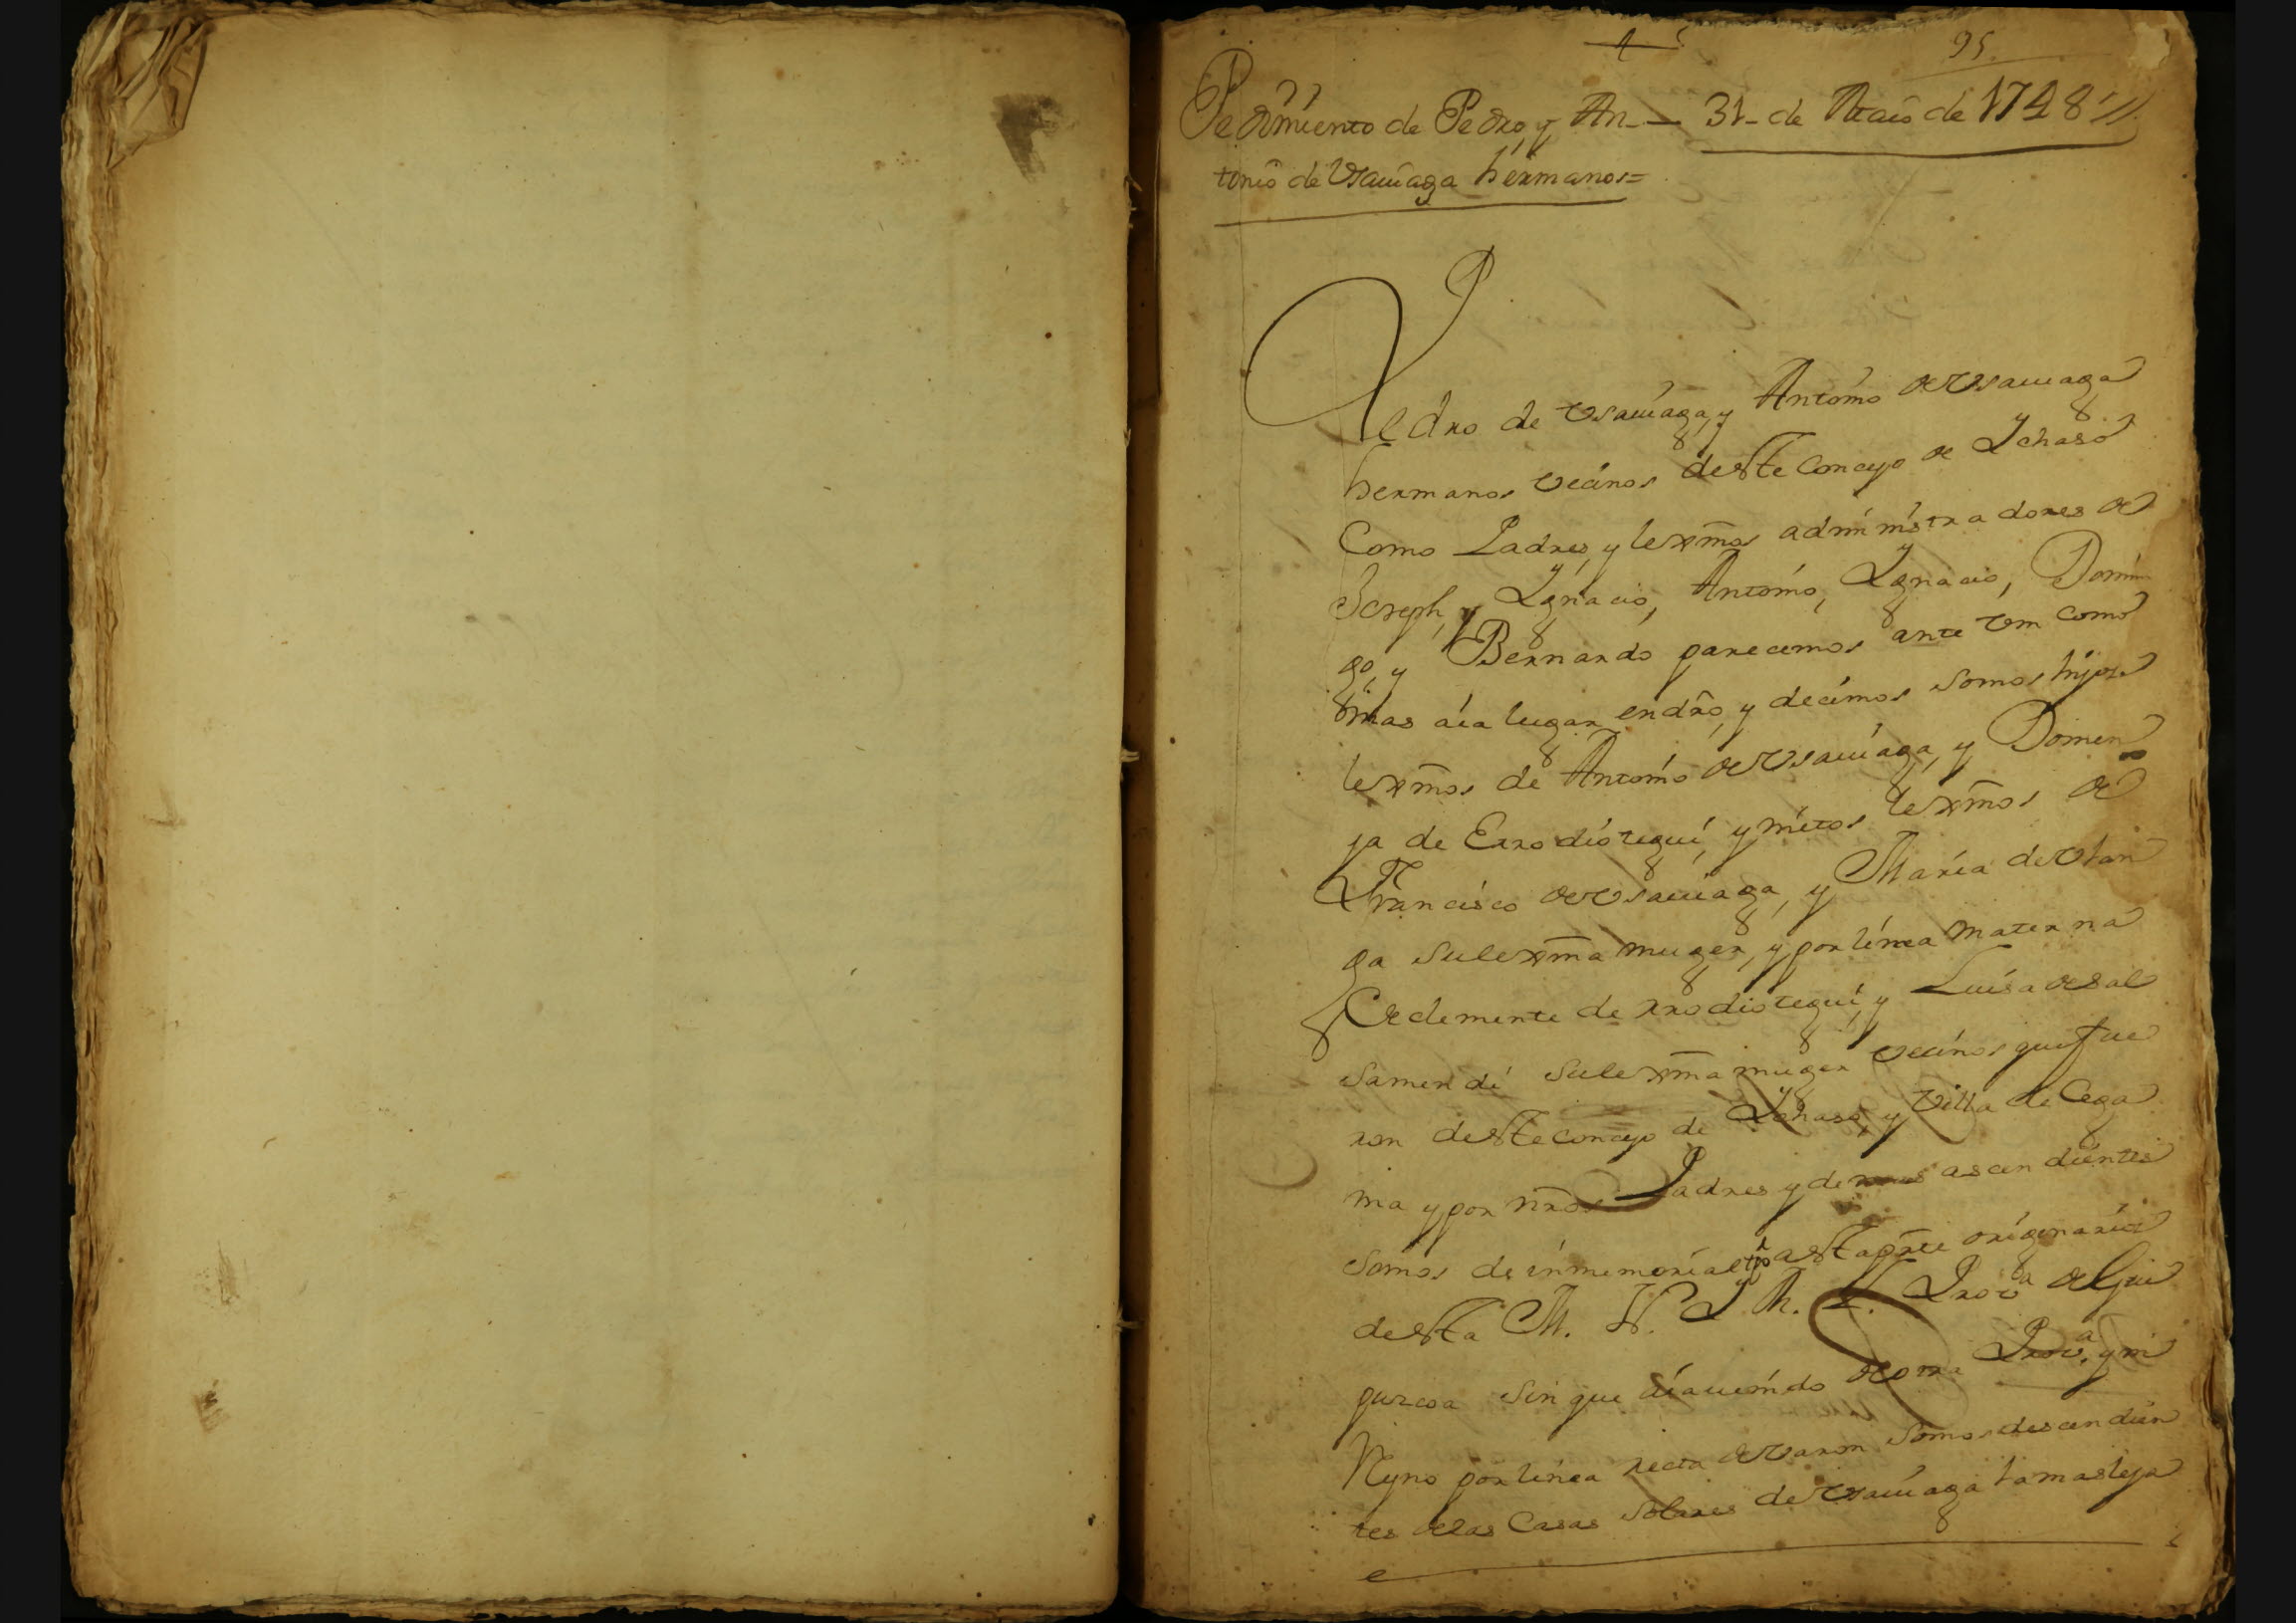 95
Pedimiento de Pedro, y An- 31- de Maio de 1748
tonio de Vsauiaga hermanos=
Pedro de Vsauiaga, y Antonio de Vsauiaga
hermanos vecinos deste Concejo de Ychaso
Como Padres, y lexmos administradores de
Joseph, y Ygnacio, Antonio, Ygnacio, Domin
go, y Bernardo parecemos ante Vm como
mas aia lugar en dro, y decimos somos hijos
lexmos de Antonio de Vsauiaga, y Domen
ja de Errodiotegui, y nietos lexmos de
Francisco de Vsauiaga, y Maria de Vban
ga su lexma muger, y por linea materna
de Clemente de rrodiotegui, y Luisa de sal
samendi su lexma muger vecinos que fue
ron deste concejo de Ychaso, y Villa de Cega
ma y por nros Padres y demas ascendientes
somos de inmemorial tpo a esta prte originarios
desta M. N. Y M. L. Prova de Gui
puzcoa sin que aia uenido de otra Prova, y ni
Reyno por linea recta de varon somos descendien
tes de las Casas Solares de Vsauiaga